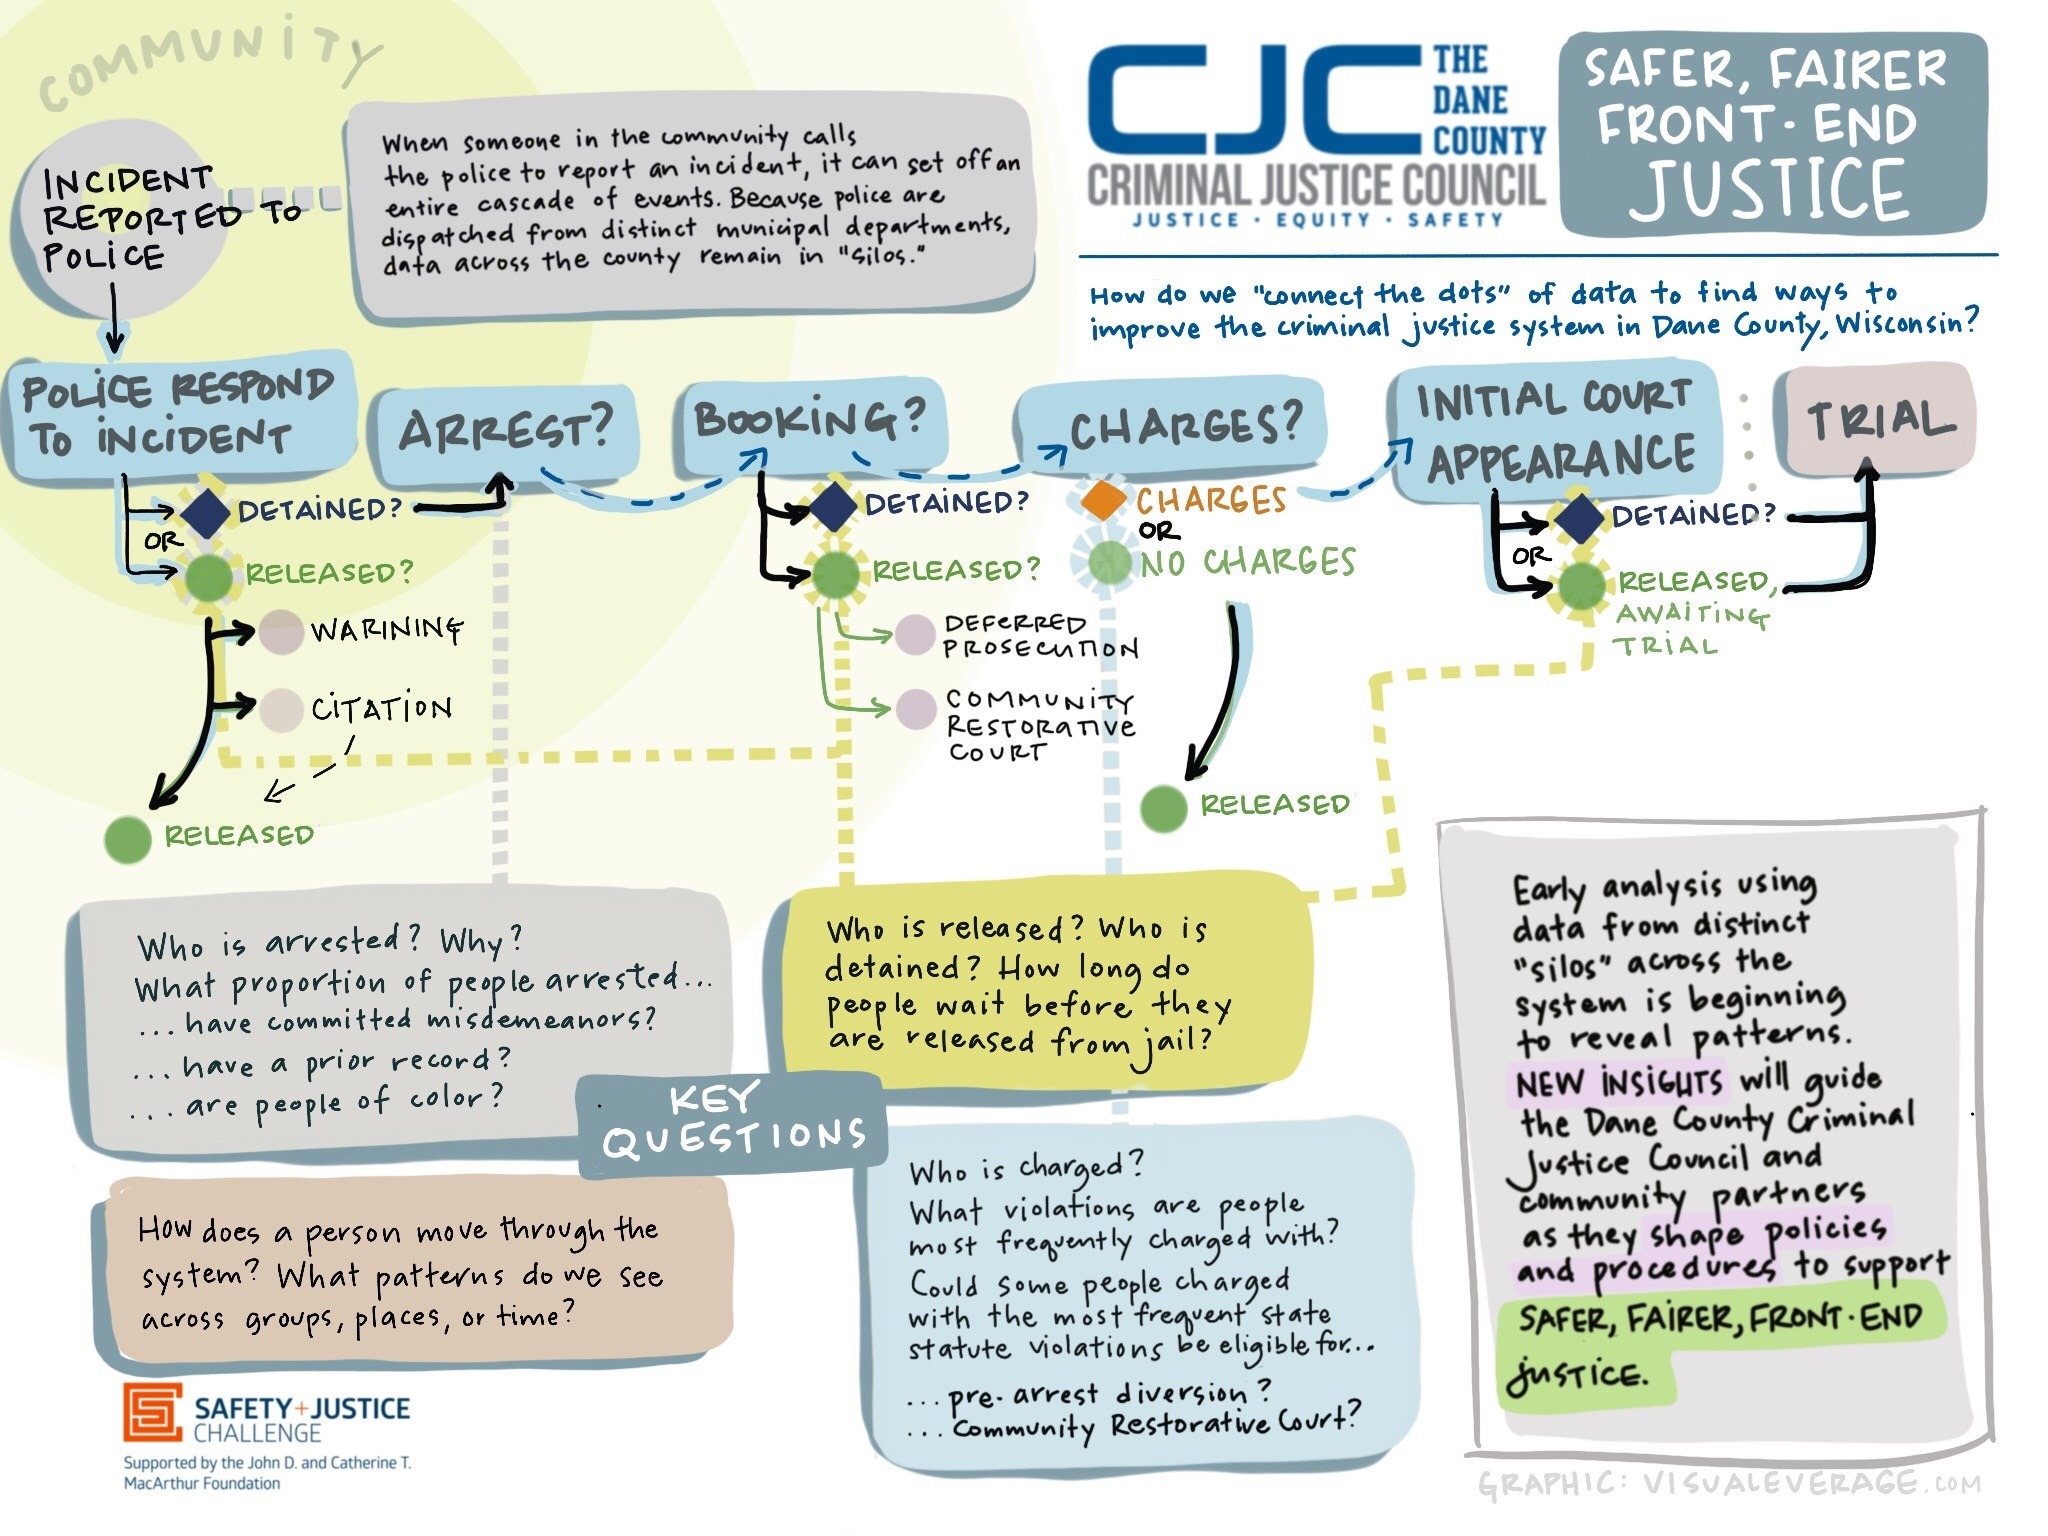 COMMUNITY
INCIDENT
REPORTED TO
POLICE
When someone in the community calls
the police to report an incident, it can set off an
entire cascade of events. Because police are
dispatched from distinct municipal departments,
data across the county remain in "silos."
CJC THE
DANE
COUNTY
CRIMINAL JUSTICE COUNCIL
JUSTICE · EQUITY · SAFETY
SAFER, FAIRER
FRONT·END
JUSTICE
How do we "connect the dots" of data to find ways to
improve the criminal justice system in Dane County, Wisconsin?
POLICE RESPOND
TO INCIDENT
DETAINED?
OR
RELEASED?
WARINING
CITATION
RELEASED
ARREST?
BOOKING?
DETAINED?
RELEASED?
DEFERRED
PROSECUTION
COMMUNITY
RESTORATIVE
COURT
CHARGES?
CHARGES
OR
NO CHARGES
RELEASED
INITIAL COURT
APPEARANCE
DETAINED?
OR
RELEASED,
AWAITING
TRIAL
TRIAL
Who is arrested? Why?
What proportion of people arrested...
...have committed misdemeanors?
...have a prior record?
...are people of color?
KEY
QUESTIONS
Who is released? Who is
detained? How long do
people wait before they
are released from jail?
How does a person move through the
system? What patterns do we see
across groups, places, or time?
Who is charged?
What violations are people
most frequently charged with?
Could some people charged
with the most frequent state
statute violations be eligible for...
...pre-arrest diversion?
...Community Restorative Court?
Early analysis using
data from distinct
"silos" across the
system is beginning
to reveal patterns.
NEW INSIGHTS will guide
the Dane County Criminal
Justice Council and
community partners
as they shape policies
and procedures to support
SAFER, FAIRER, FRONT·END
JUSTICE.
SAFETY+JUSTICE
CHALLENGE
Supported by the John D. and Catherine T.
MacArthur Foundation
GRAPHIC: VISUALEVERAGE.COM